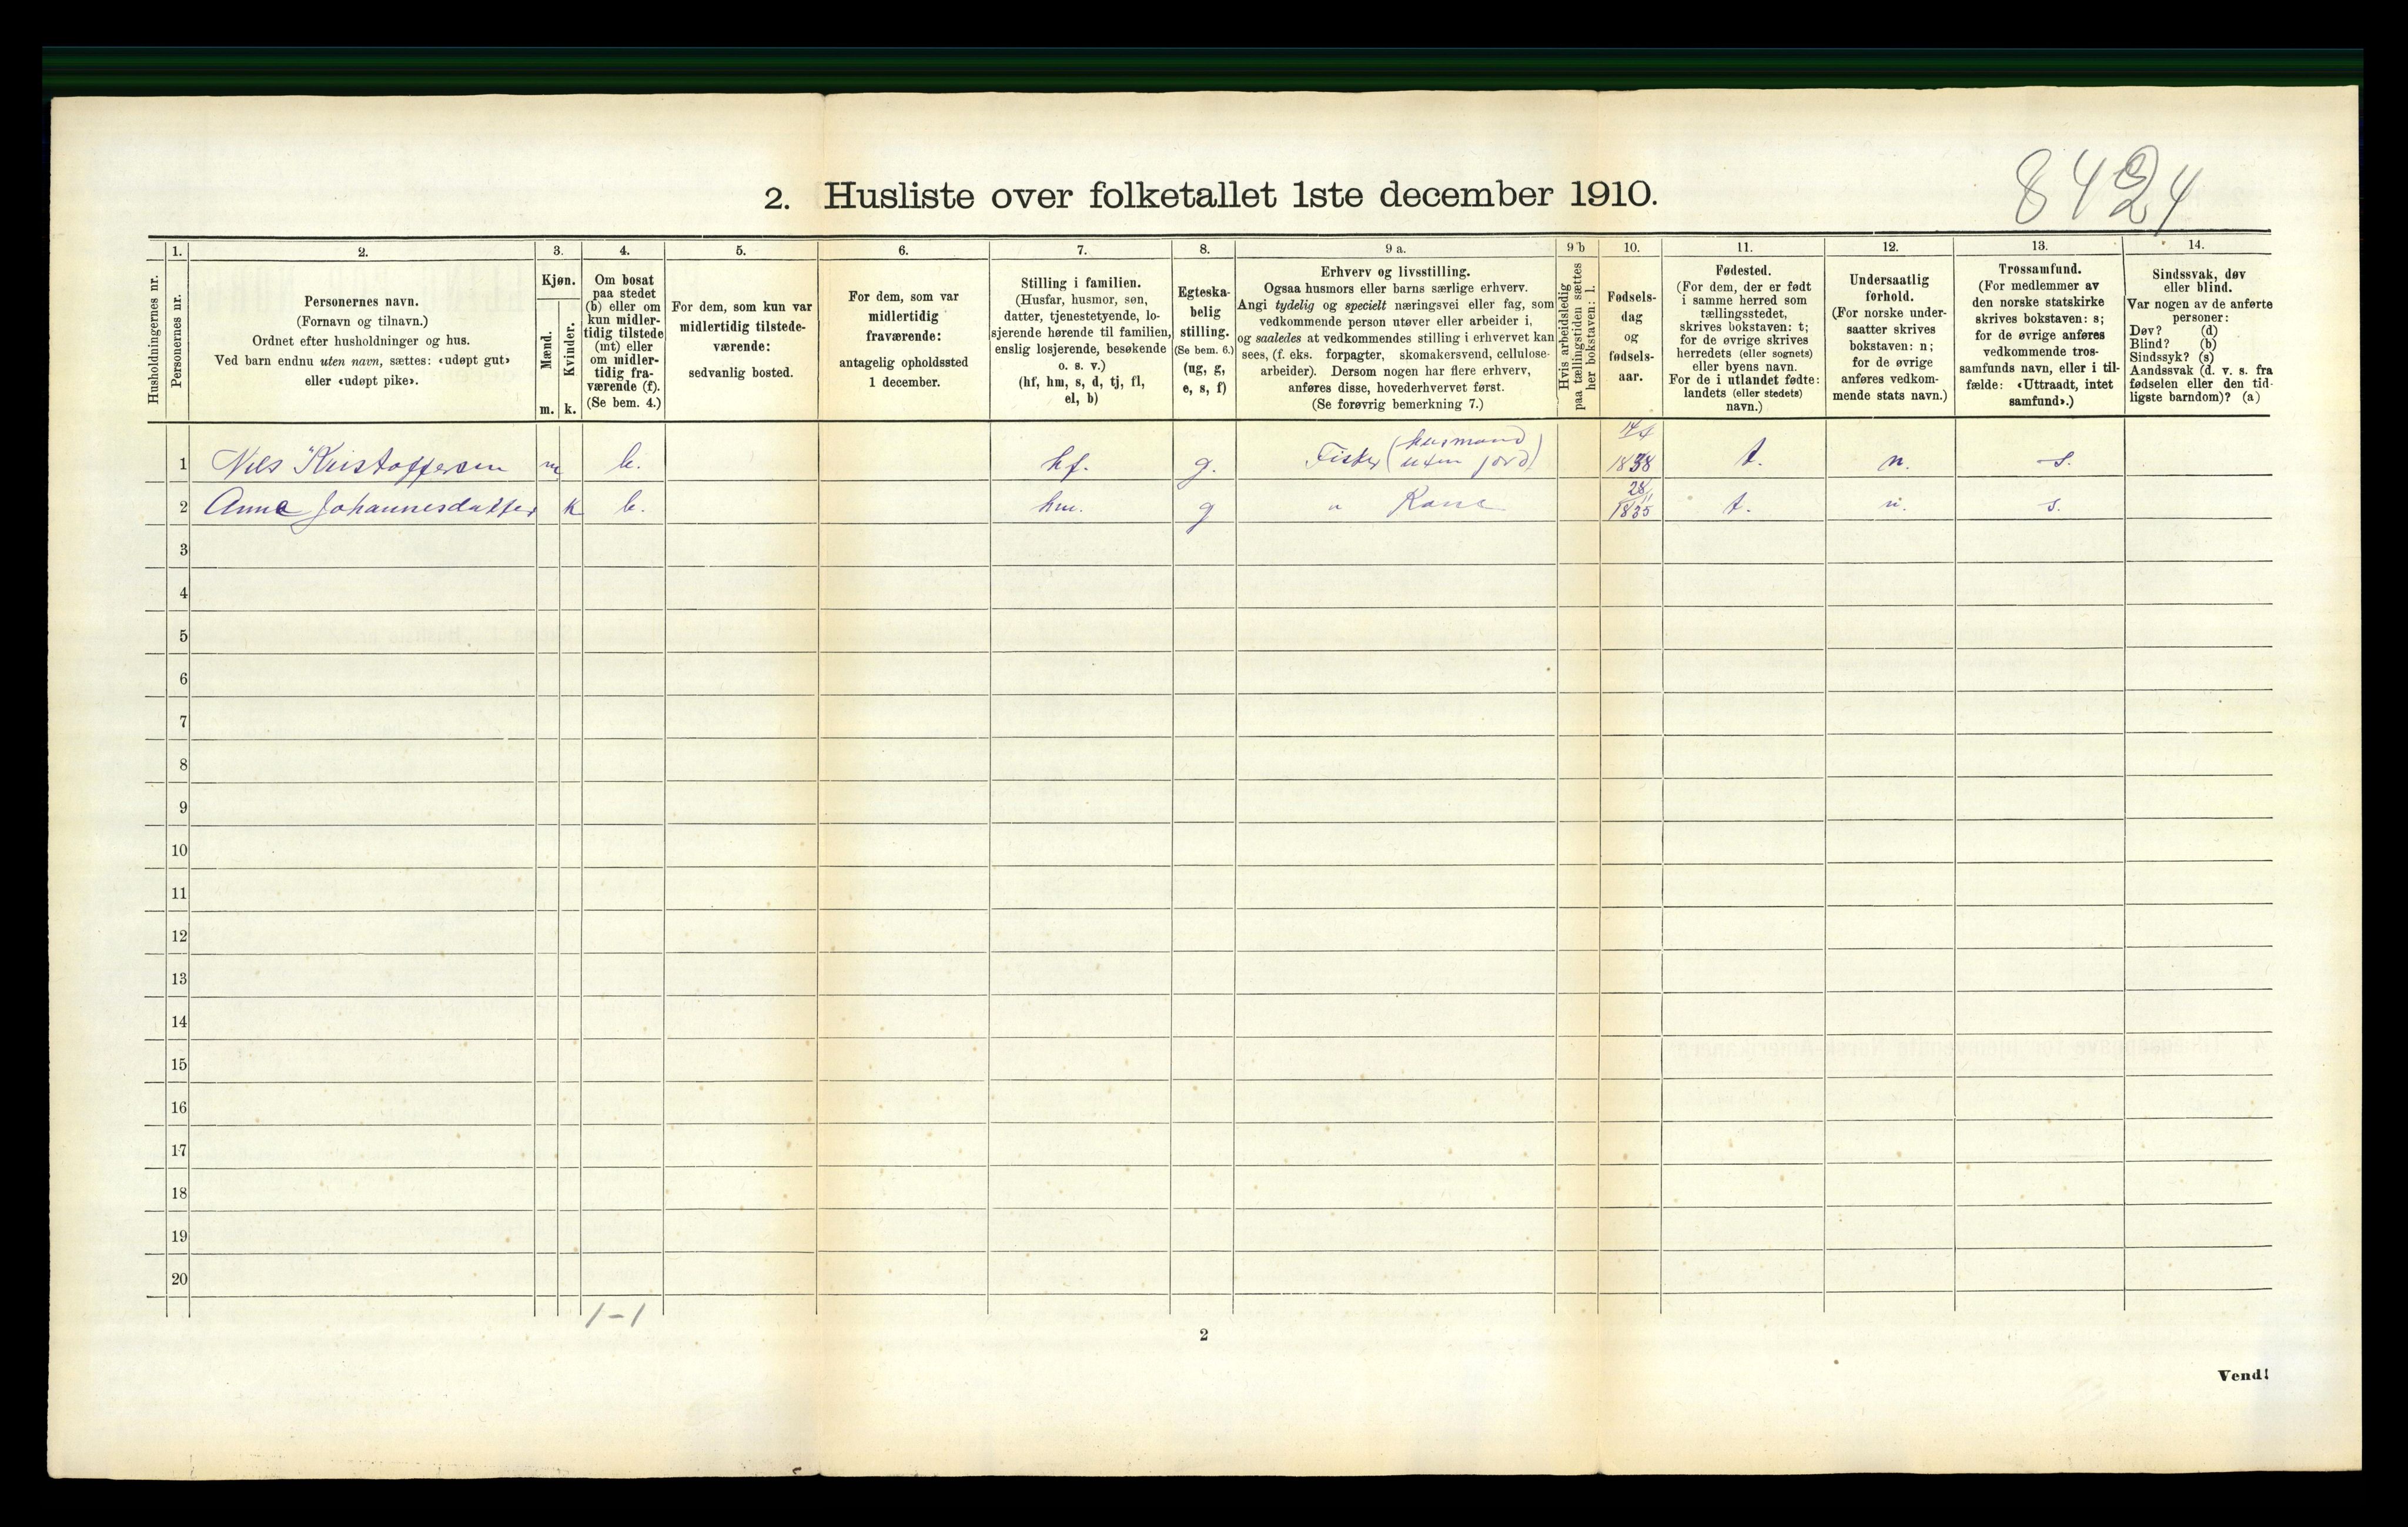 8424
2. Husliste over folketallet 1ste december 1910.
Husholdningernes nr.
1.
Personernes nr.
2.
Personernes navn.
(Fornavn og tilnavn.)
Ordnet efter husholdninger og hus.
Ved barn endnu uten navn, sættes: «udøpt gut»
eller «udøpt pike».
3.
Kjøn.
Mænd.
Kvinder.
m. k.
4.
Om bosat
paa stedet
(b) eller om
kun midler-
tidig tilstede
(mt) eller
om midler-
tidig fra-
værende (f).
(Se bem. 4.)
5.
For dem, som kun var
midlertidig tilstede-
værende:
sedvanlig bosted.
6.
For dem, som var
midlertidig
fraværende:
antagelig opholdssted
1 december.
7.
Stilling i familien.
(Husfar, husmor, søn,
datter, tjenestetyende, lo-
sjerende hørende til familien,
enslig losjerende, besøkende
o. s. v.)
(hf, hm, s, d, tj, fl,
el, b)
8.
Egteska-
belig
stilling.
(Se bem. 6.)
(ug, g,
e, s, f)
9 a.
Erhverv og livsstilling.
Ogsaa husmors eller barns særlige erhverv.
Angi tydelig og specielt næringsvei eller fag, som
vedkommende person utøver eller arbeider i,
og saaledes at vedkommendes stilling i erhvervet kan
sees, (f. eks. forpagter, skomakersvend, cellulose-
arbeider). Dersom nogen har flere erhverv,
anføres disse, hovederhvervet først.
(Se forøvrig bemerkning 7.)
9 b
Hvis arbeidsledig
paa tællingstiden sættes
her bokstaven: l.
10.
Fødsels-
dag
og
fødsels-
aar.
11.
Fødested.
(For dem, der er født
i samme herred som
tællingsstedet,
skrives bokstaven: t;
for de øvrige skrives
herredets (eller sognets)
eller byens navn.
For de i utlandet fødte:
landets (eller stedets)
navn.)
12.
Undersaatlig
forhold.
(For norske under-
saatter skrives
bokstaven: n;
for de øvrige
anføres vedkom-
mende stats navn.)
13.
Trossamfund.
(For medlemmer av
den norske statskirke
skrives bokstaven: s;
for de øvrige anføres
vedkommende tros-
samfunds navn, eller i til-
fælde: «Uttraadt, intet
samfund».)
14.
Sindssvak, døv
eller blind.
Var nogen av de anførte
personer:
Døv? (d)
Blind? (b)
Sindssyk? (s)
Aandssvak (d. v. s. fra
fødselen eller den tid-
ligste barndom)? (a)
1 Nils Kristoffersen m b. hf. g. Fisker (husmand uten jord) 14/4 1838 t. n. s.
2 Anna Johannesdatter k b. hm. g " Kone 28/11 1835 t. n. s.
3
4
5
6
7
8
9
10
11
12
13
14
15
16
17
18
19
20
1-1
2
Vend!